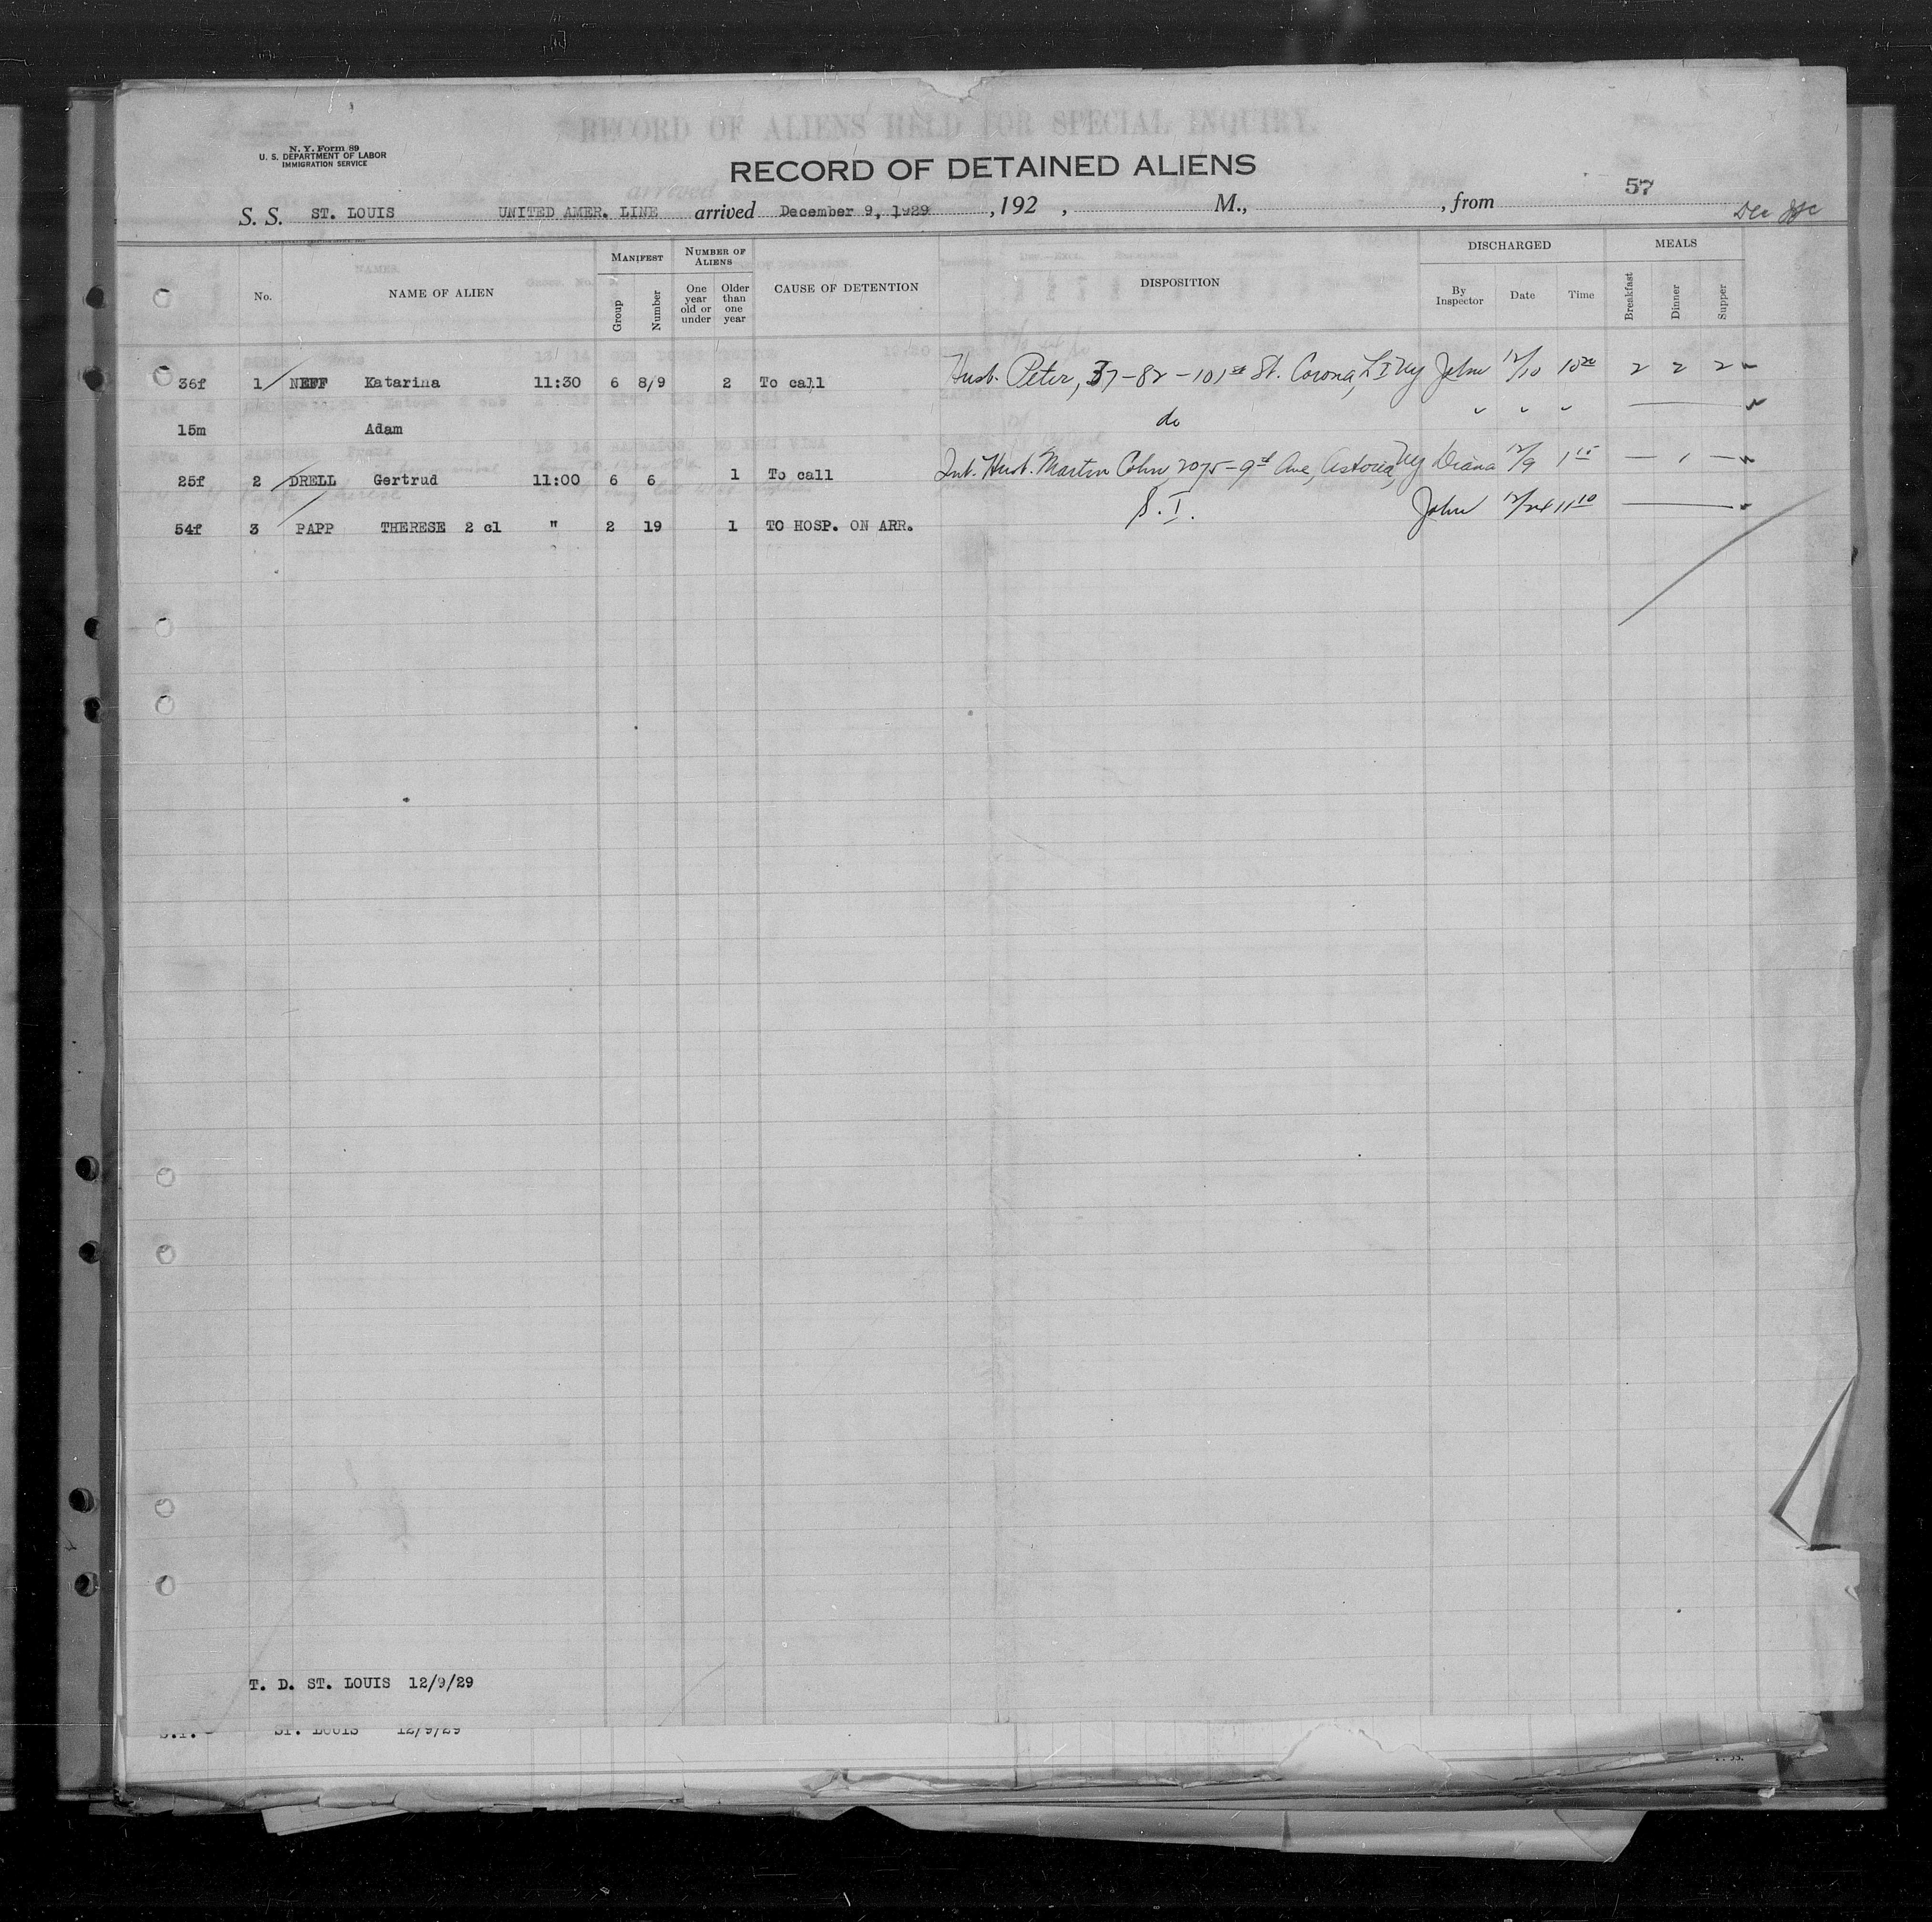 N. Y. Form 89
U. S. DEPARTMENT OF LABOR
IMMIGRATION SERVICE
RECORD OF ALIENS HELD FOR SPECIAL INQUIRY.
RECORD OF DETAINED ALIENS
57
S. S. ST. LOUIS UNITED AMER. LINE arrived December 9, 1929, 192 , M., , from
Dec
No. NAME OF ALIEN MANIFEST Group Number NUMBER OF ALIENS One year old or under Older than one year CAUSE OF DETENTION DISPOSITION DISCHARGED By Inspector Date Time MEALS Breakfast Dinner Supper
36f 1 NEFF Katarina 11:30 6 8/9 2 To call Husb. Peter, 37-82-101st St. Corona, L I NY John 12/10 10 20 2 2 2
15m Adam do " " "
25f 2 DRELL Gertrud 11:00 6 6 1 To call Int. Husb. Martin Cohn, 2075-9th Ave, Astoria, NY Diana 12/9 1 15 — 1 —
54f 3 PAPP THERESE 2 cl " 2 19 1 TO HOSP. ON ARR. S. I. John 12/24 11 10
T. D. ST. LOUIS 12/9/29
S.I. ST. LOUIS 12/9/29